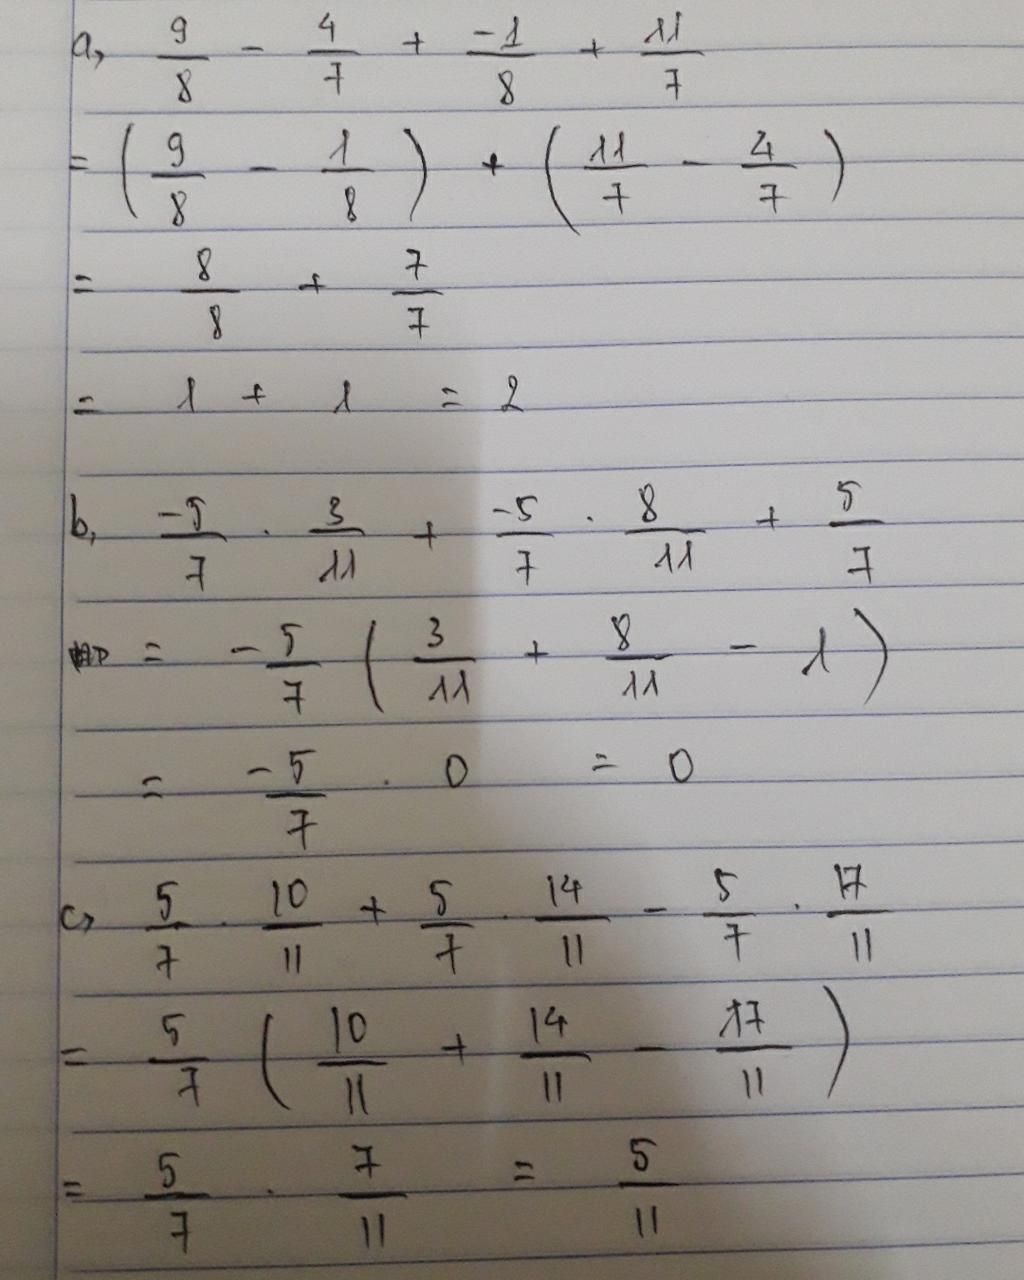 a, 9/8 - 4/7 + -1/8 + 11/7
= (9/8 - 1/8) + (11/7 - 4/7)
= 8/8 + 7/7
= 1 + 1 = 2
b, -5/7 . 3/11 + -5/7 . 8/11 + 5/7
= -5/7 (3/11 + 8/11 - 1)
= -5/7 . 0 = 0
c, 5/7 . 10/11 + 5/7 . 14/11 - 5/7 . 17/11
= 5/7 (10/11 + 14/11 - 17/11)
= 5/7 . 7/11 = 5/11